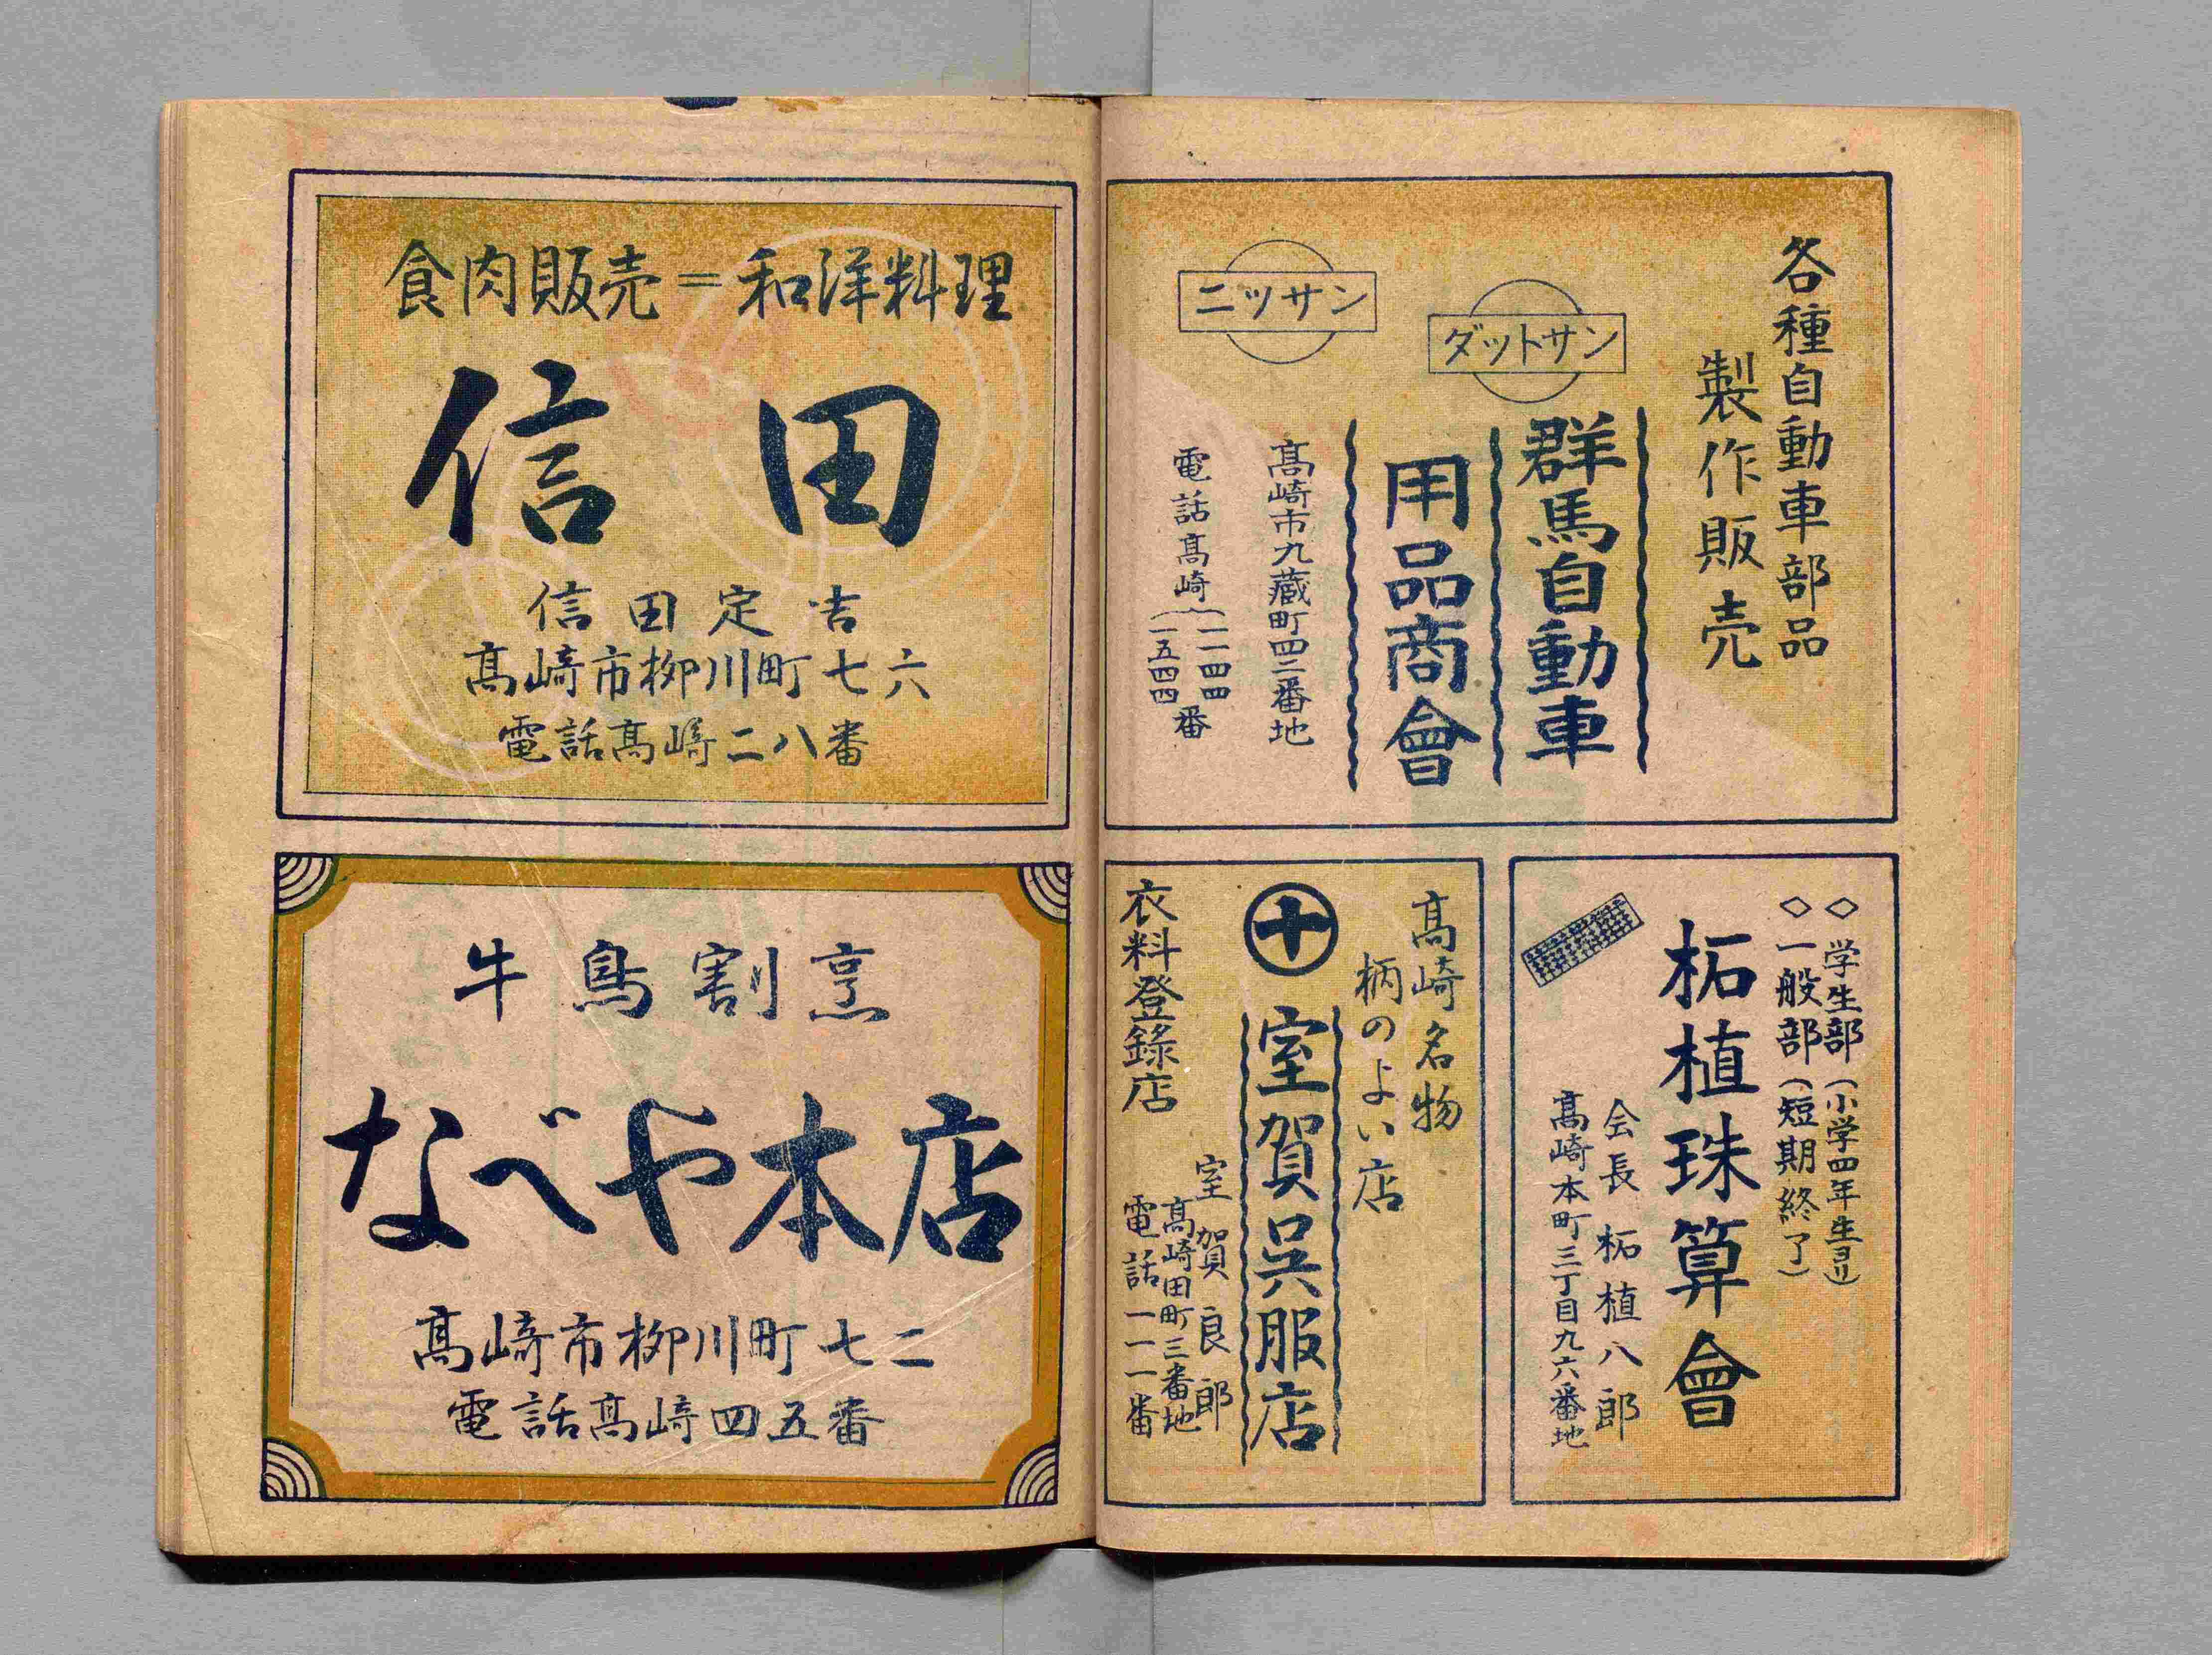 各種自動車部品
製作販売
ダットサン
ニッサン
群馬自動車
用品商會
髙崎市九蔵町四二番地
電話髙崎(一一四四
一五四四番
◇学生部(小学四年生ヨリ)
◇一般部(短期終了)
柘植珠算會
会長 柘植八郎
髙崎本町三丁目九六番地
髙崎名物
柄のよい店
十
室賀呉服店
室賀良郎
髙崎田町三番地
電話一一一番
衣料登錄店
食肉販売=和洋料理
信田
信田定吉
髙崎市柳川町七六
電話髙崎二八番
牛鳥割烹
なべや本店
髙崎市柳川町七二
電話髙崎四五番